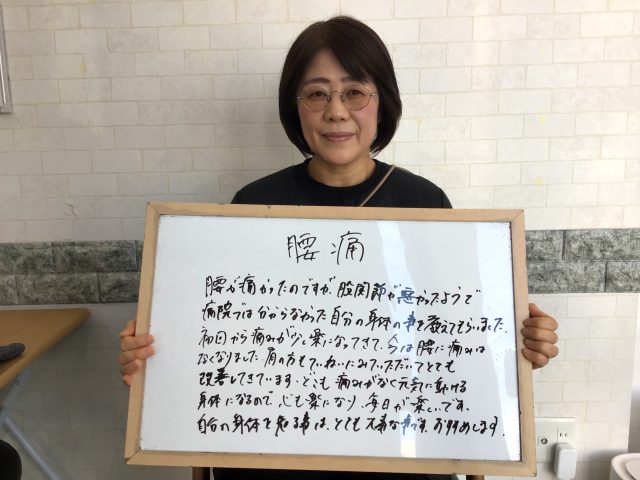 腰痛
腰が痛かったのですが、股関節が悪かったようで
病院では分からなかった自分の身体の事を教えてもらいました。
初回から痛みが少し楽になってきて、今は腰に痛みは
なくなりました。肩の方もていねいにみていただいてとても
改善してきています。どこも痛みがなく元気に動ける
身体になるので、心も楽になり、毎日が楽しいです。
自分の身体を知る事は、とても大事な事です。おすすめします。